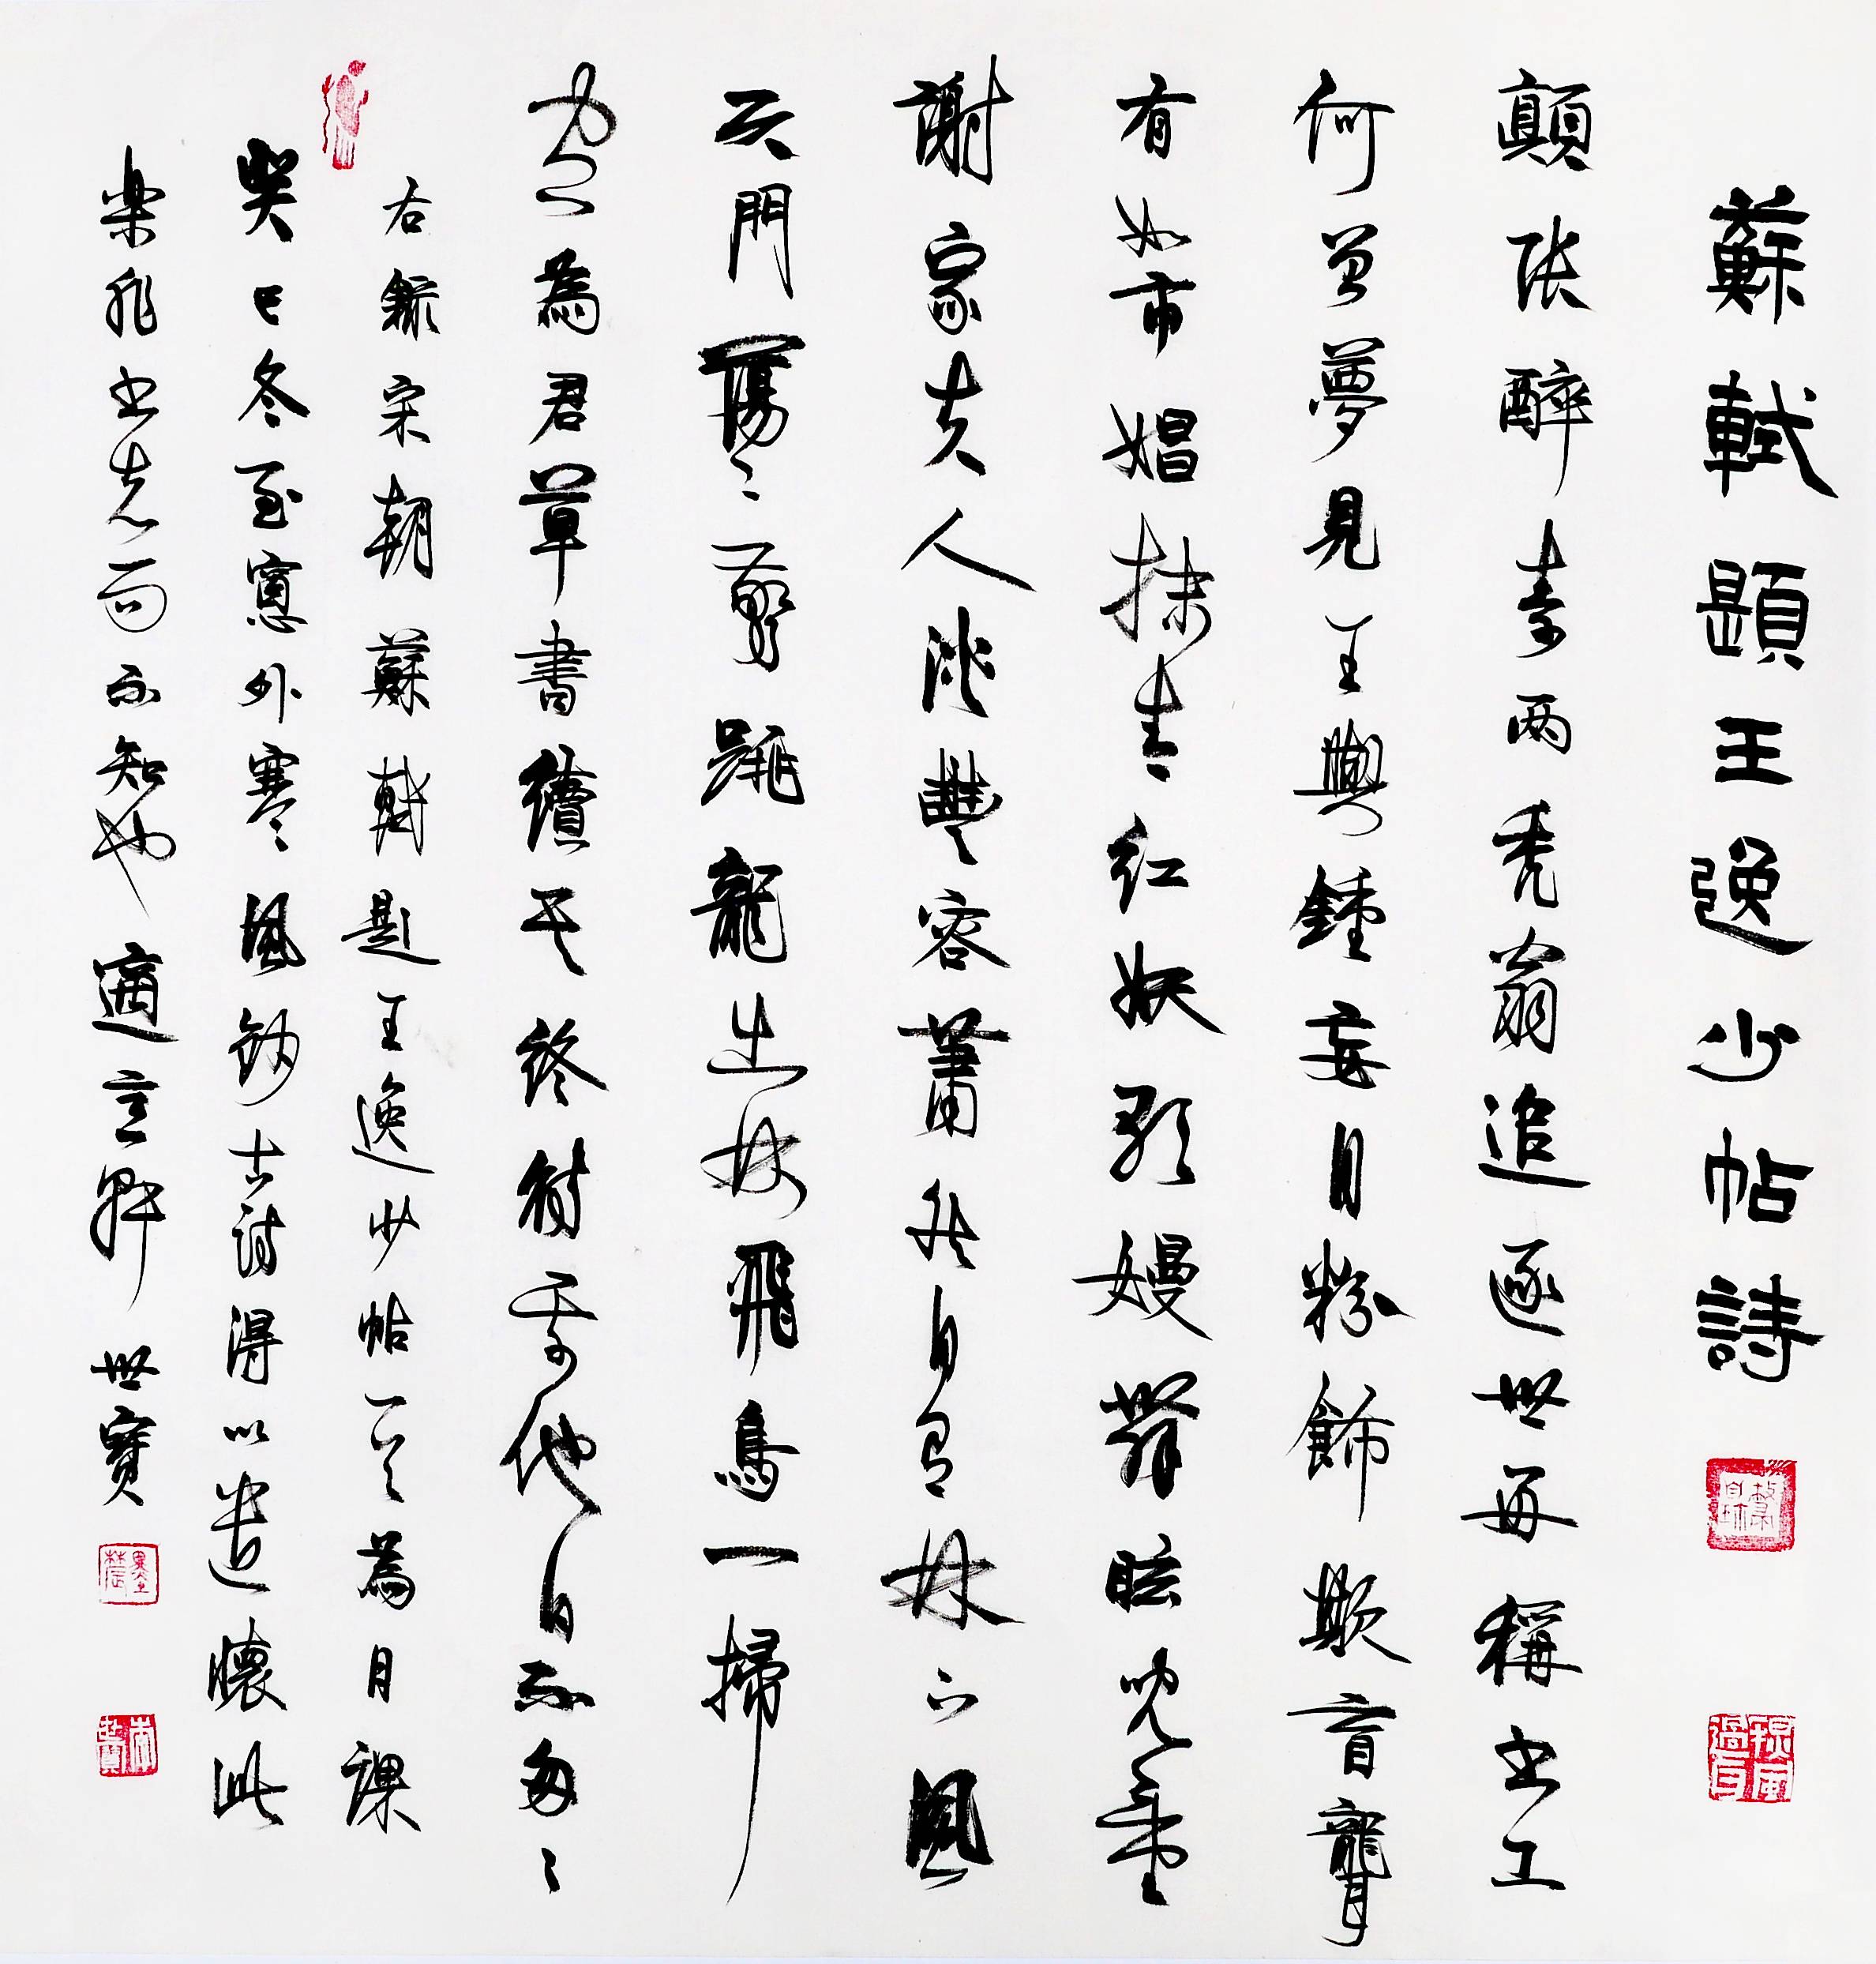 蘇軾題王逸少帖詩
顛張醉素两禿翁追逐世再稱書工
何曾夢見王與鍾妄自粉飾欺盲聾
有如市娼抹青紅妖歌嫚舞眩兒童
謝家夫人淡豐容蕭然自有林下風
天門蕩〻驚跳龍出林飛鳥一掃
空為君草書續其終待我他日不匆〻
右錄宋朝蘇軾題王逸少帖一首為日課
癸巳冬至窗外寒風鈔古詩得以遣懷此
樂非書者而不知也適言軒世寶